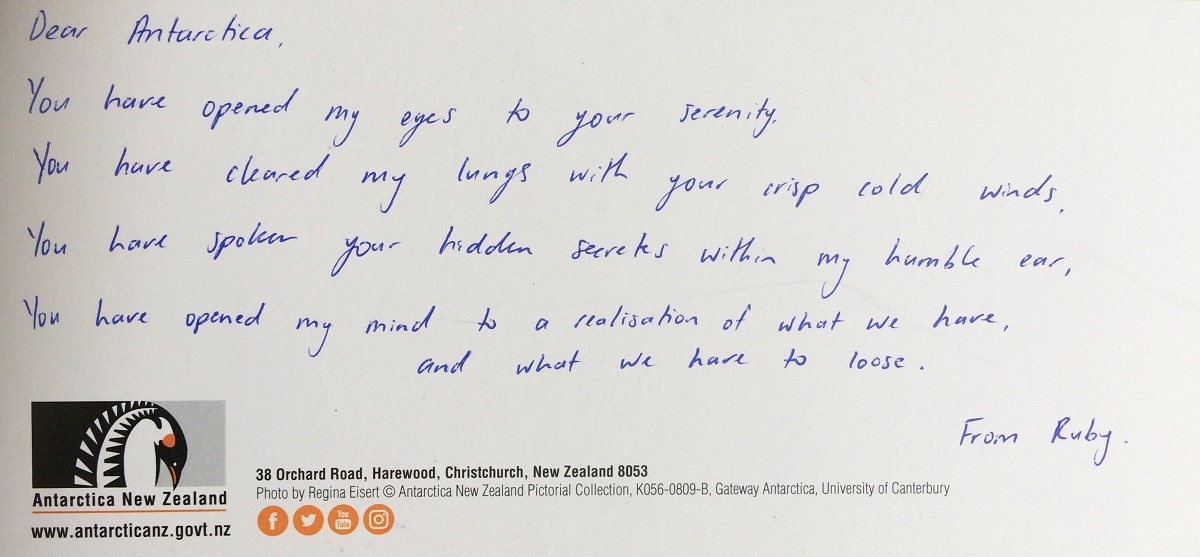 Dear Antarctica,
You have opened my eyes to your serenity.
You have cleared my lungs with your crisp cold winds,
You have spoken your hidden secrets within my humble ear,
You have opened my mind to a realisation of what we have,
and what we have to loose.
From Ruby.
Antarctica New Zealand
www.antarcticanz.govt.nz
38 Orchard Road, Harewood, Christchurch, New Zealand 8053
Photo by Regina Eisert © Antarctica New Zealand Pictorial Collection, K056-0809-B, Gateway Antarctica, University of Canterbury
f You Tube